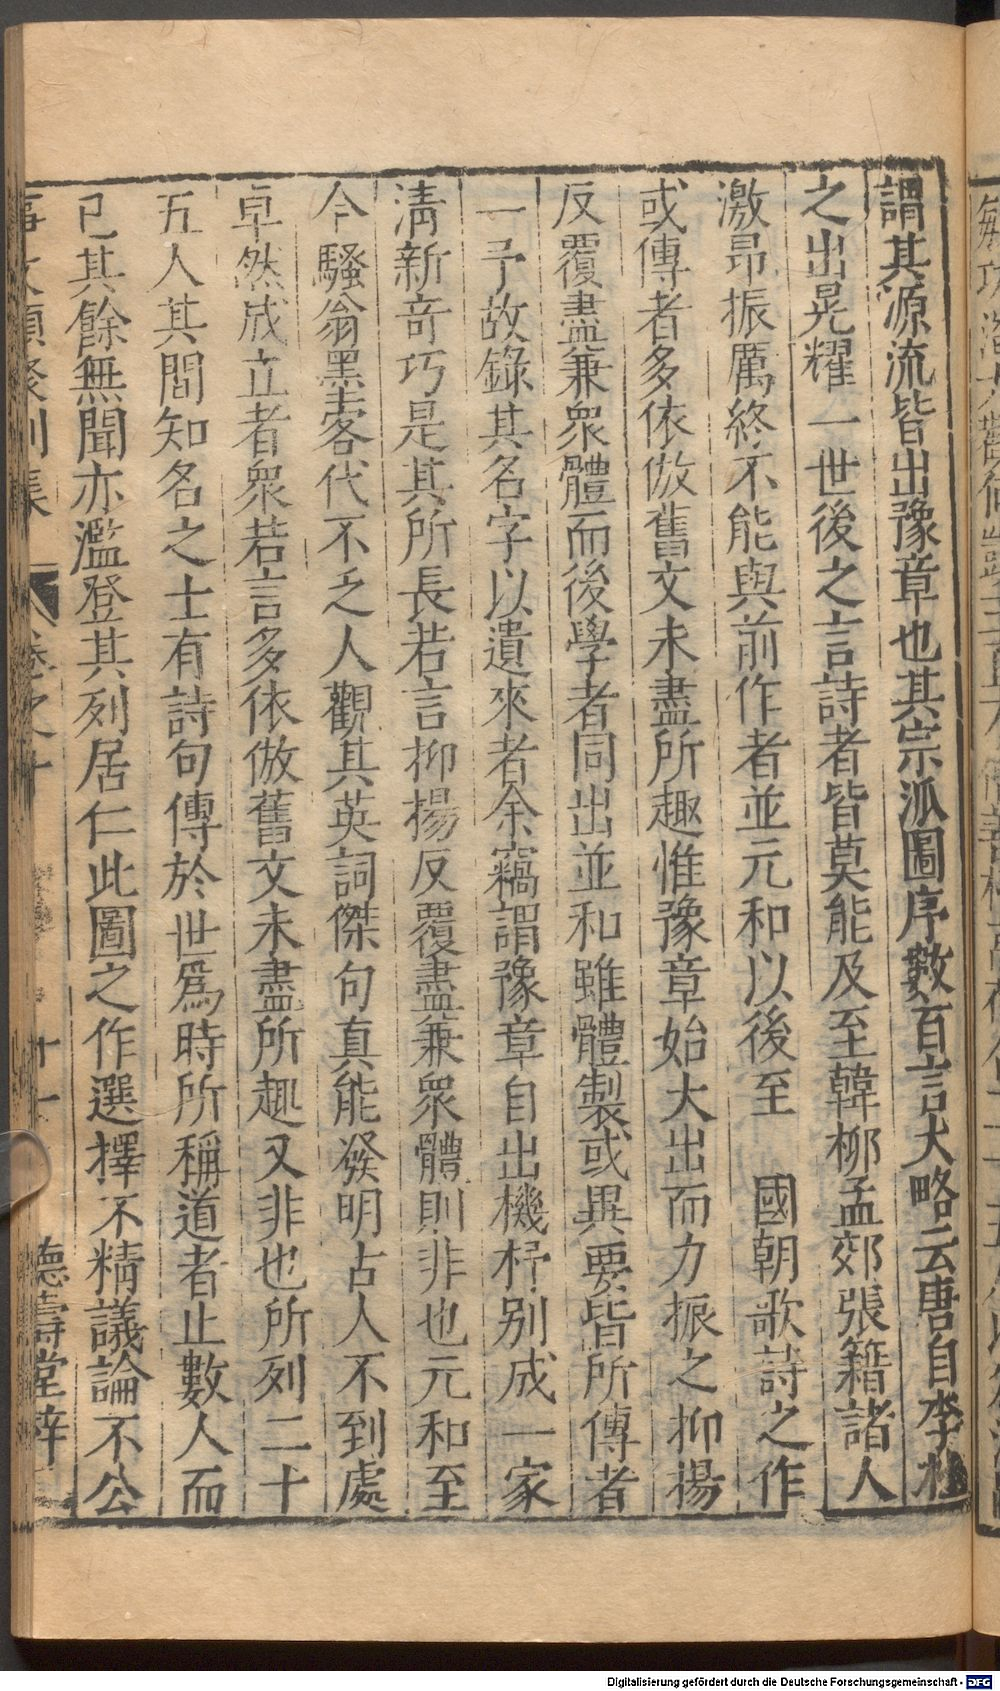 謂其源流皆出豫章也其宗派圖序數百言大略云唐自李杜
之出晃耀一世後之言詩者皆莫能及至韓柳孟郊張籍諸人
激昻振厲終不能與前作者並元和以後至　國朝歌詩之作
或傳者多依倣舊文未盡所趣惟豫章始大出而力振之抑揚
反覆盡兼衆體而後學者同出並和雖體製或異要皆所傳者
一予故錄其名字以遺來者余竊謂豫章自出機杼別成一家
淸新奇巧是其所長若言抑揚反覆盡兼衆體則非也元和至
今騷翁墨客代不乏人觀其英詞傑句真能發明古人不到處
卓然成立者衆若言多依倣舊文未盡所趣又非也所列二十
五人其間知名之士有詩句傳於世爲時所稱道者止數人而
已其餘無聞亦濫登其列居仁此圖之作選擇不精議論不公
事文類聚別集　卷之十　十一　德壽堂梓
Digitalisierung gefördert durch die Deutsche Forschungsgemeinschaft - DFG